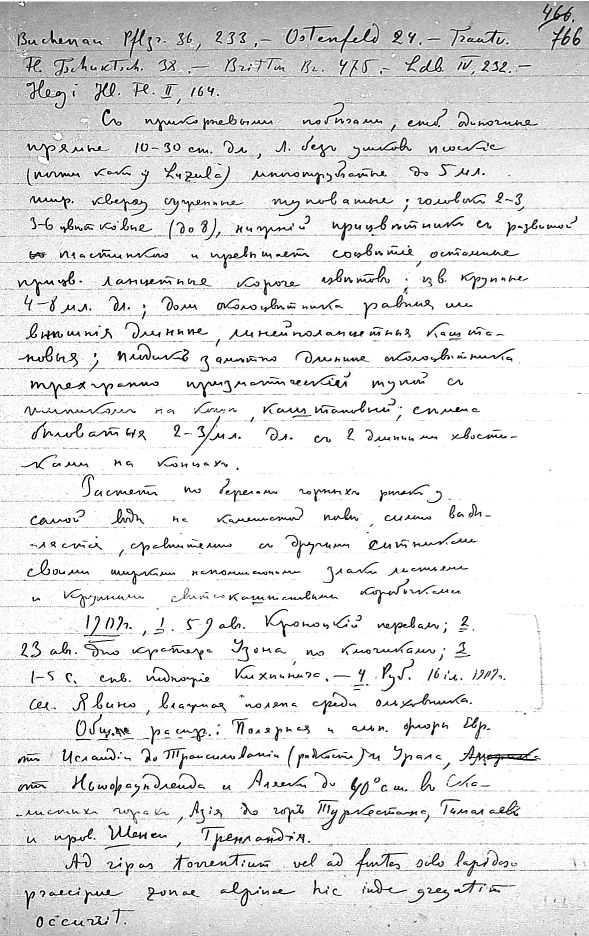 466.
Buchenau Pflzr. 36, 233.— Ostenfeld 24.— Trautv. 766
Fl. Tschuktsch. 38.— Britton Br. 475.— Ldb. IV, 232.—
Hegi Ill. Fl. II, 164.
Съ прикорневыми побѣгами, стб. одиночные
прямые 10-30 ст. дл., л. безъ ушковъ плоскіе
(почти какъ у Luzula) многотрубчатые до 5 мл.
шир. кверху суженные туповатые; головокъ 2-3,
3-6 цвѣтковые (до 8), нижній прицвѣтникъ съ развитой
пластинкою и превышаетъ соцвѣтіе, остальные
прицв. ланцетные короче цвѣтовъ; цв. крупные
4-8 мл. дл.; доли околоцвѣтника равныя или
внѣшнія длиннѣе, линейноланцетныя кашта-
новыя; плодикъ замѣтно длиннѣе околоцвѣтника
трехгранно призматическій тупой съ
на концѣ, каштановый; сѣмена
бѣловатыя 2-3 мл. дл. съ 2 длинными хвости-
ками на концахъ.
Растетъ по берегамъ горныхъ рѣчекъ у
самой воды на каменистой почвѣ, сильно выдѣ-
ляется, сравнительно съ другими ситниками
своими широкими напоминающими злаки листьями
и крупными свѣтлокаштановыми коробочками
1909г., 1. 5 9 ав. Кроноцкій перевалъ; 2.
23 ав. дно кратера Узона, по ключикамъ; 3
1-5 с. сѣв. подножіе Кихпиныча. — 4. Руб. 16 іл. 1909г.
сел. Явино, влажная поляна среди ольховника.
Общ. распр.: Полярная и альп. флоры Евр.
отъ Исландіи до Трансильваніи (рѣдкость) и Урала,
отъ Ньюфаундленда и Аляски до 40° с.ш. въ Ска-
листыхъ горахъ, Азія до горъ Туркестана, Гималаевъ
и пров. Шенси, Гренландія.
Ad ripas torrentium vel ad fontes solo lapidoso
praecipue zonae alpinae hic inde gregatim
occurrit.